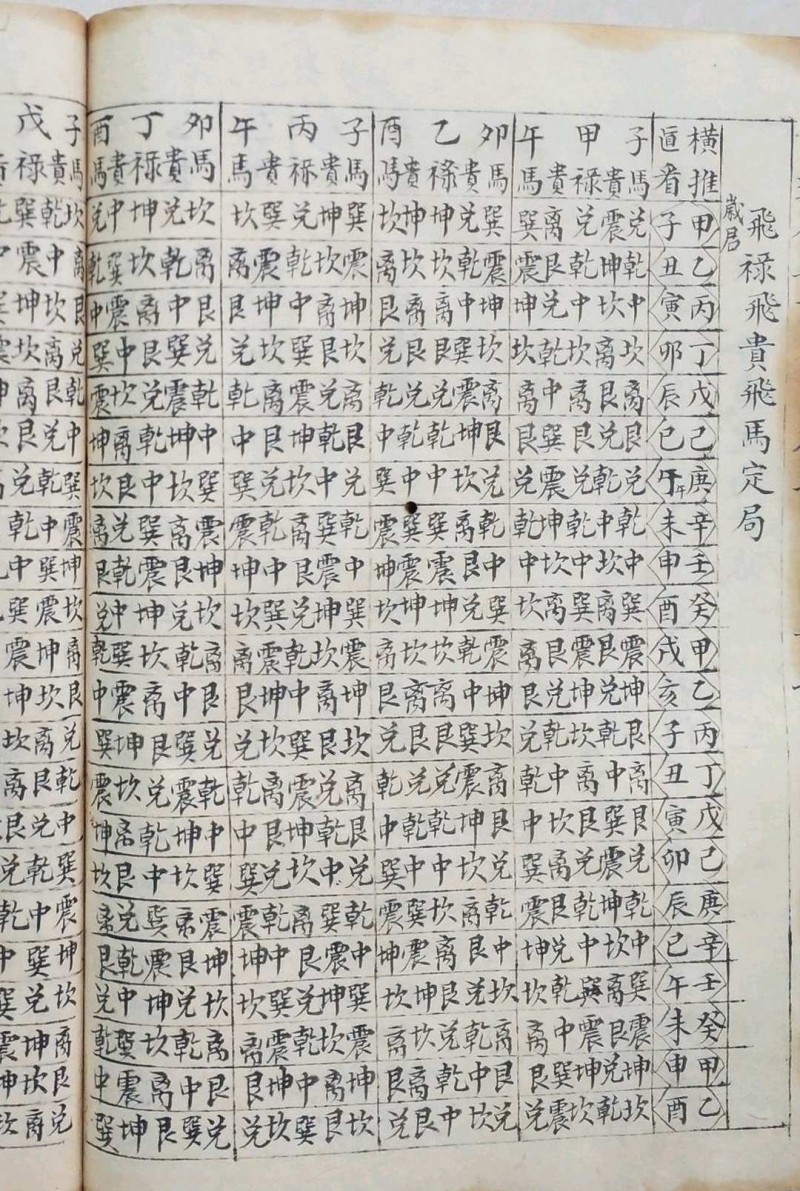 飛祿飛貴飛馬定局
歲君
橫推直看 子甲午 卯乙酉 子丙午 卯丁酉 子戊
馬貴祿貴馬 馬貴祿貴馬 馬貴祿貴馬 馬貴祿貴馬 馬貴祿
甲子 兌震兌离巽 巽兌坤坤坎 巽坤兌巽坎 坎兌坤中兌 坎乾巽
乙丑 乾坤乾艮震 震乾坎坎离 震坎乾震离 离乾坎巽乾 离中震
丙寅 中坎中兌坤 坤中离离艮 坤离中坤艮 艮中离震中 艮坎坤
丁卯 坎离坎乾坎 坎巽艮艮兌 坎艮巽坎兌 兌巽艮中巽 兌离坎
戊辰 离艮离中离 离震兌兌乾 离兌震离乾 乾震兌坎震 乾艮离
己巳 艮兌艮巽艮 艮坤乾乾中 艮乾坤艮中 中坤乾离坤 中兌艮
庚午 兌乾兌震兌 兌坎中中巽 兌中坎兌巽 巽坎中艮坎 巽乾兌
辛未 乾中乾坤乾 乾离巽巽震 乾巽离乾震 震离巽兌离 震中乾
壬申 中坎中坎中 中艮震震坤 中震艮中坤 坤艮震乾艮 坤巽中
癸酉 巽离巽离坎 巽兌坤坤坎 巽坤兌巽坎 坎兌坤中兌 坎震巽
甲戌 震艮震艮离 震乾坎坎离 震坎乾震离 离乾坎巽乾 离坤震
乙亥 坤兌坤兌艮 坤中离离艮 坤离中坤艮 艮中离震中 艮坎坤
丙子 艮乾坎乾兌 坎巽艮艮兌 坎艮巽坎兌 兌巽艮坤巽 兌离坎
丁丑 离中离中乾 离震兌兌乾 离兌震离乾 乾震兌坎震 乾艮离
戊寅 艮巽艮坎中 艮坤乾乾中 艮乾坤艮中 中坤乾离坤 中兌艮
己卯 兌震兌离巽 兌坎中中巽 兌中坎兌巽 巽坎中艮坎 巽乾兌
庚辰 乾坤乾艮震 乾离坎巽震 乾巽离乾震 震离巽兌离 震中乾
辛巳 中坎中兌坤 中艮离震坤 中震艮中坤 坤艮震乾艮 坤巽中
壬午 巽离巽乾坎 坎兌艮坤坎 巽坤兌巽坎 坎兌坤中兌 坎兌巽
癸未 震艮震中离 离乾兌坎离 震坎乾震离 离乾坎巽乾 离坤震
甲申 坤兌坤巽艮 艮中乾离艮 坤离中坤艮 艮中离震中 艮坎坤
乙酉 坎乾坎震兌 兌坎中艮兌 坎艮巽坎兌 兌巽艮坤巽 兌离坎